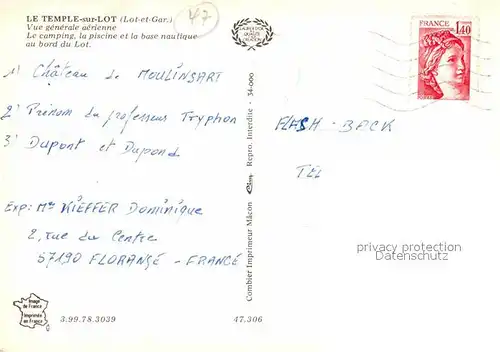 LE TEMPLE-sur-LOT (Lot-et-Gar.)
47
Vue générale aérienne
Le camping, la piscine et la base nautique
au bord du Lot.
1) Château de MOULINSART
2) Prénom du professeur Tryphon
3) Dupont et Dupond
Exp: Mr KIEFFER Dominique
2, rue du Centre
57190 FLORANGE - FRANCE
Image
de France
Imprimée
en France
3.99.78.3039
47.306
Combier Imprimeur Mâcon
Repro. Interdite - 34-000
FRANCE
1,40
FLASH - BACK
TEL
privacy protection